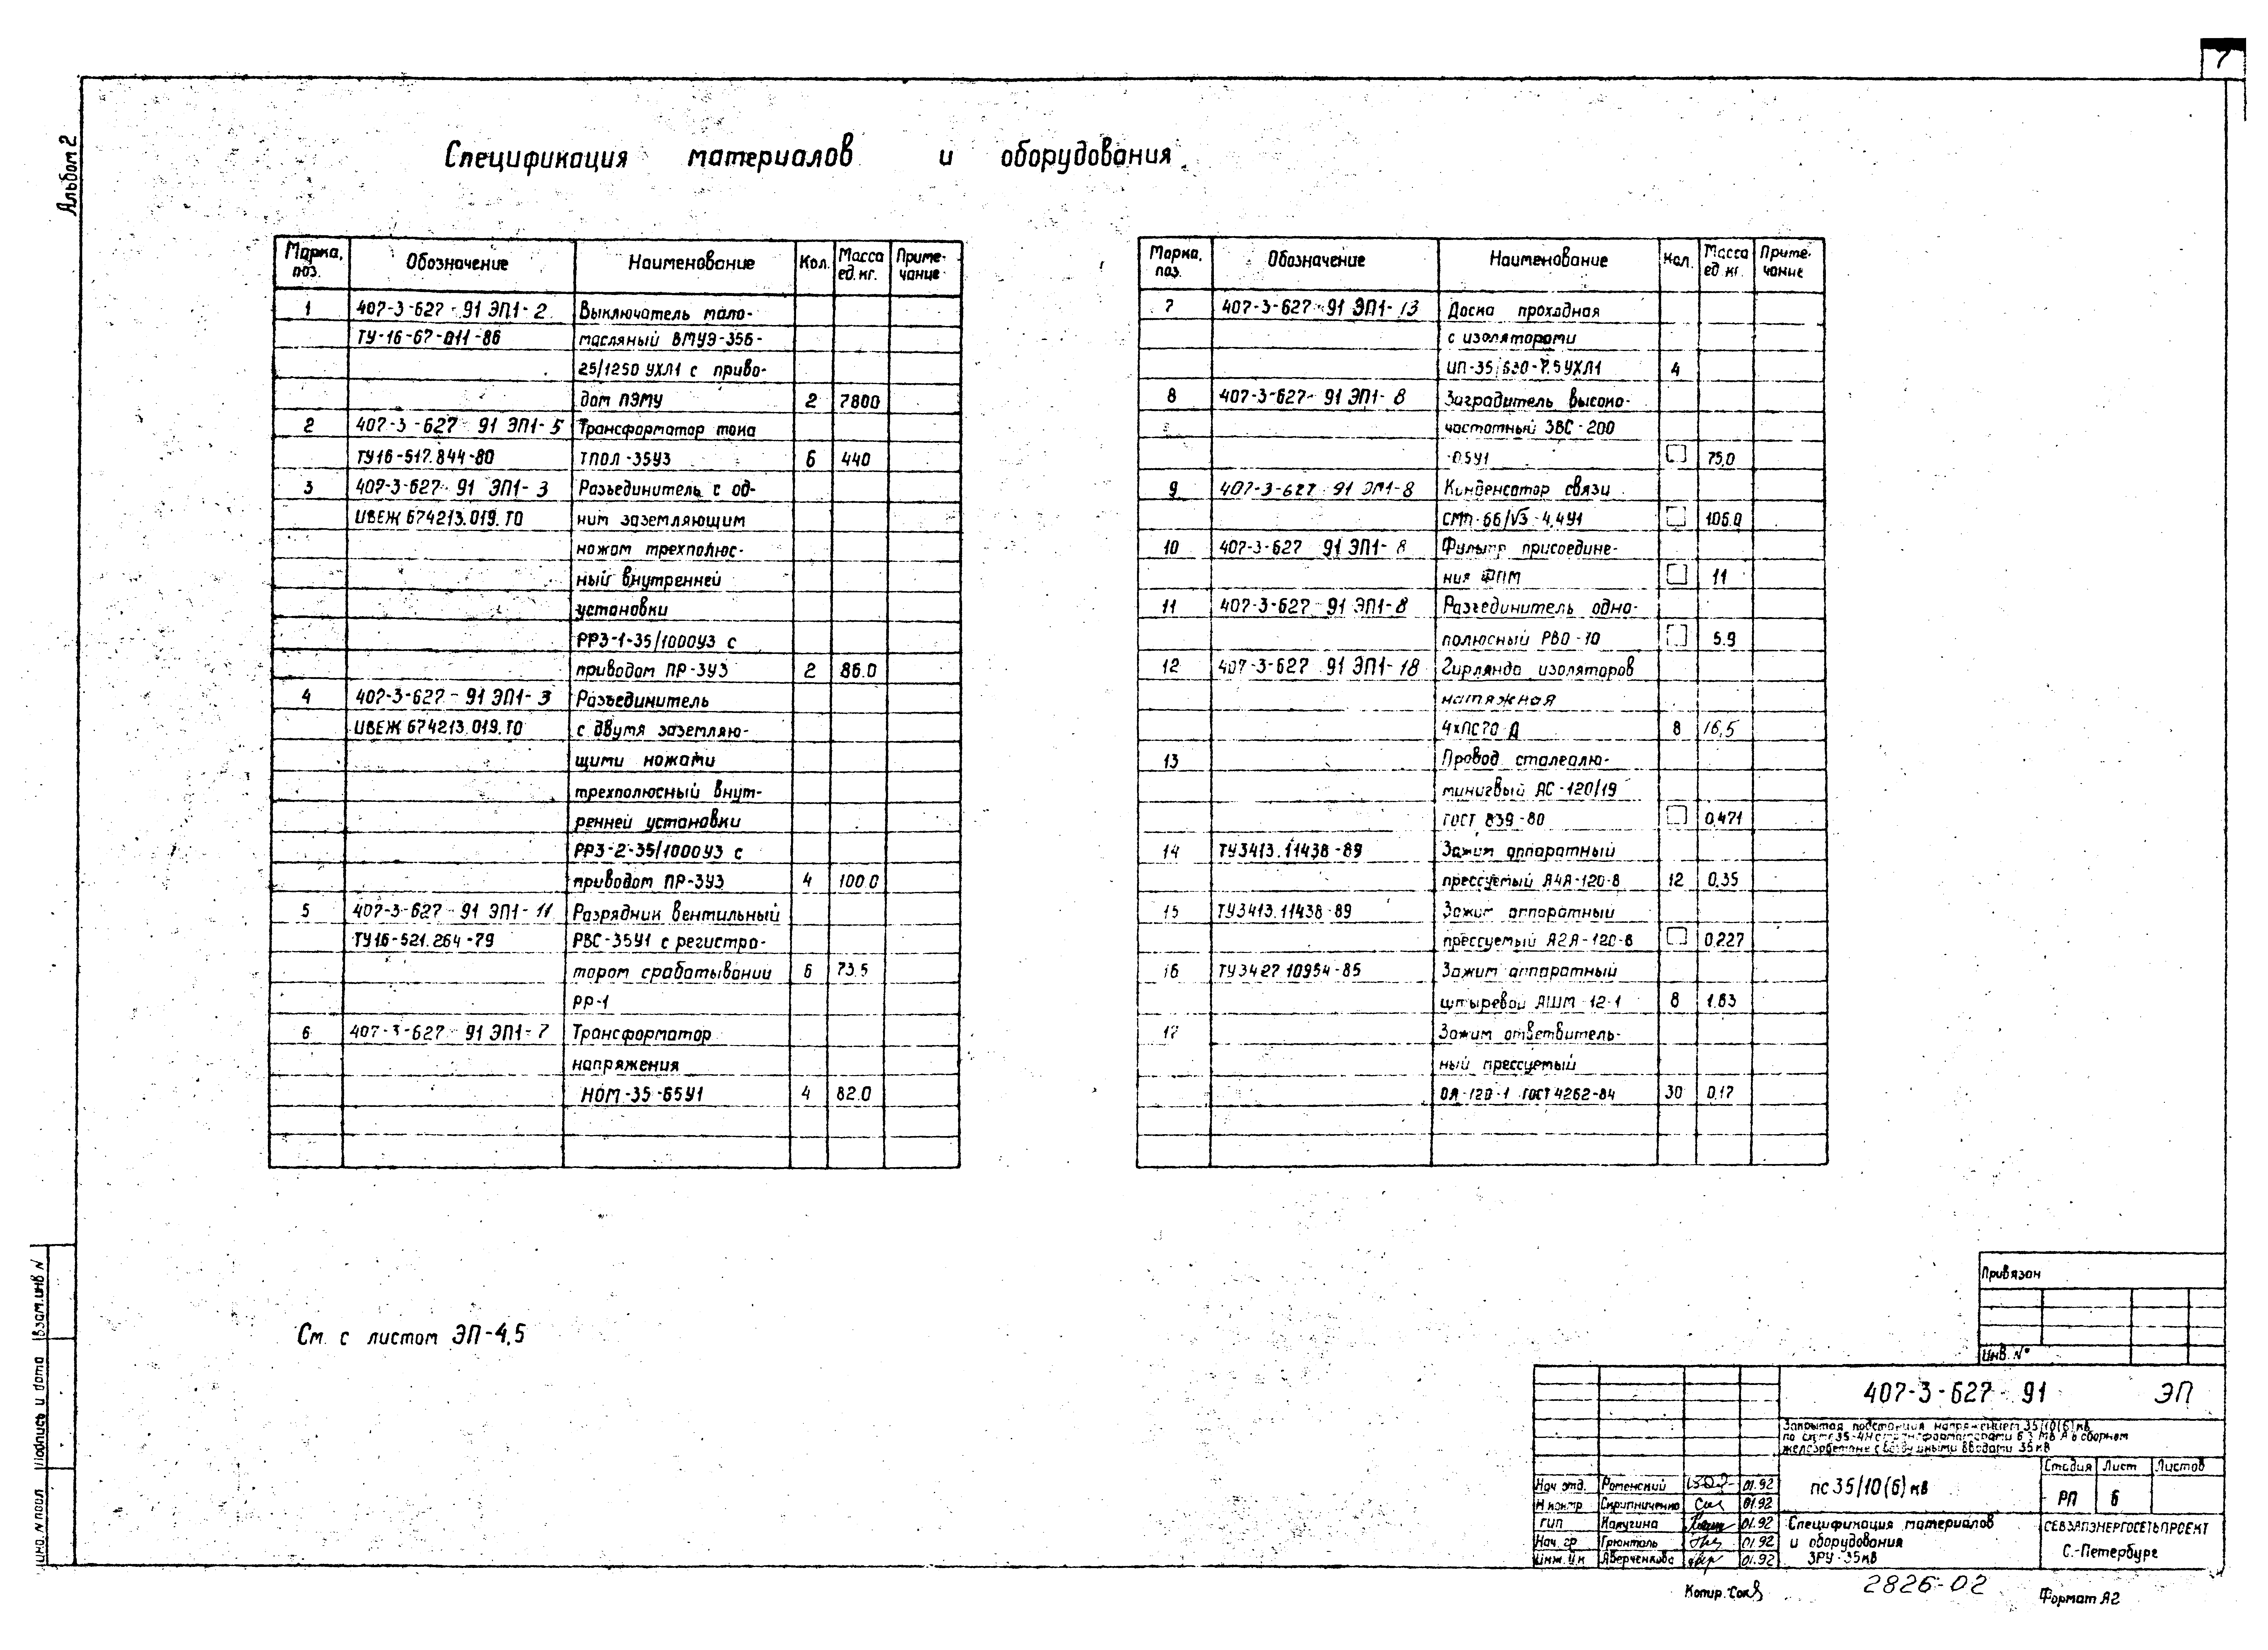 7
Альбом 2
Спецификация материалов и оборудования
Марка, поз. Обозначение Наименование Кол. Масса ед. кг. Приме-чание
1 407-3-627-91 ЭП1-2 Выключатель мало-
ТУ-16-67-011-86 масляный ВМУЭ-35Б-
25/1250 УХЛ1 с приво-
дом ПЭМУ 2 7800
2 407-3-627-91 ЭП1-5 Трансформатор тока
ТУ16-517.844-80 ТПОЛ-35У3 6 440
3 407-3-627-91 ЭП1-3 Разъединитель с од-
ИВЕЖ 674213.019.ТО ним заземляющим
ножом трехполюс-
ный внутренней
установки
РРЗ-1-35/1000У3 с
приводом ПР-3У3 2 86.0
4 407-3-627-91 ЭП1-3 Разъединитель
ИВЕЖ 674213.019.ТО с двумя заземляю-
щими ножами
трехполюсный внут-
ренней установки
РРЗ-2-35/1000У3 с
приводом ПР-3У3 4 100.0
5 407-3-627-91 ЭП1-11 Разрядник вентильный
ТУ16-521.264-79 РВС-35У1 с регистра-
тором срабатывании 6 73.5
РР-1
6 407-3-627-91 ЭП1-7 Трансформатор
напряжения
НОМ-35-65У1 4 82.0
Марка, поз. Обозначение Наименование Кол. Масса ед. кг. Приме-чание
7 407-3-627-91 ЭП1-13 Доска проходная
с изоляторами
ИП-35/630-7.5УХЛ1 4
8 407-3-627-91 ЭП1-8 Заградитель высоко-
частотный ЗВС-200
-0.5У1 75,0
9 407-3-627-91 ЭП1-8 Конденсатор связи
СМП-66/√3-4,4У1 106.0
10 407-3-627 91 ЭП1-8 Фильтр присоедине-
ния ФПМ 11
11 407-3-627-91 ЭП1-8 Разъединитель одно-
полюсный РВО-10 5.9
12 407-3-627 91 ЭП1-18 Гирлянда изоляторов
натяжная
4хПС70 Д 8 16,5
13 Провод сталеалю-
миниевый АС-120/19
ГОСТ 839-80 0,471
14 ТУ3413.11438-89 Зажим аппаратный
прессуемый А4А-120-8 12 0.35
15 ТУ3413.11438-89 Зажим аппаратный
прессуемый А2А-120-8 0.227
16 ТУ3427 10954-85 Зажим аппаратный
штыревой АШМ-12-1 8 1.83
17 Зажим ответвитель-
ный прессуемый
ОА-120-1 ГОСТ 4262-84 30 0.17
См. с листом ЭП-4,5
Привязан
Инв. N°
407-3-627-91 ЭП
Закрытая подстанция напряжением 35/10(6) кв
по схеме 35-4Н с трансформаторами 6.3 МВ А в сборном
железобетоне с воздушными вводами 35 кв
ПС 35/10(6) кв
Стадия Лист Листов
РП 6
Нач отд. Роменский 01.92
Н контр Скрипниченко 01.92
ГИП Калугина 01.92
Нач. гр Грюнталь 01.92
Инж. Ик Аверченкова 01.92
Спецификация материалов
и оборудования
ЗРУ-35кв
СЕВЗАПЭНЕРГОСЕТЬПРОЕКТ
С.-Петербург
Копир.
2826-02
Формат А2
Инв. N подл. Подпись и дата Взам. инв N